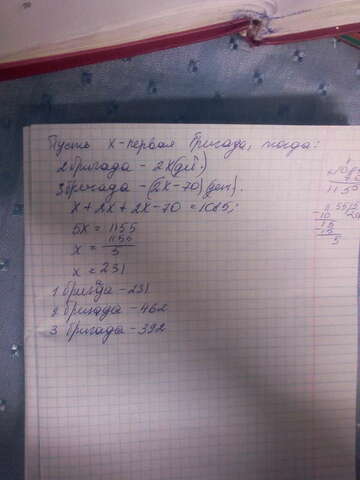 Пусть x-первая бригада, тогда:
2 бригада - 2x(дет.)
3 бригада - (2x-70)(дет).
x+2x+2x-70=1085;
5x=1155
x=1155/5
x=231
1 бригада-231
2 бригада-462
3 бригада-392